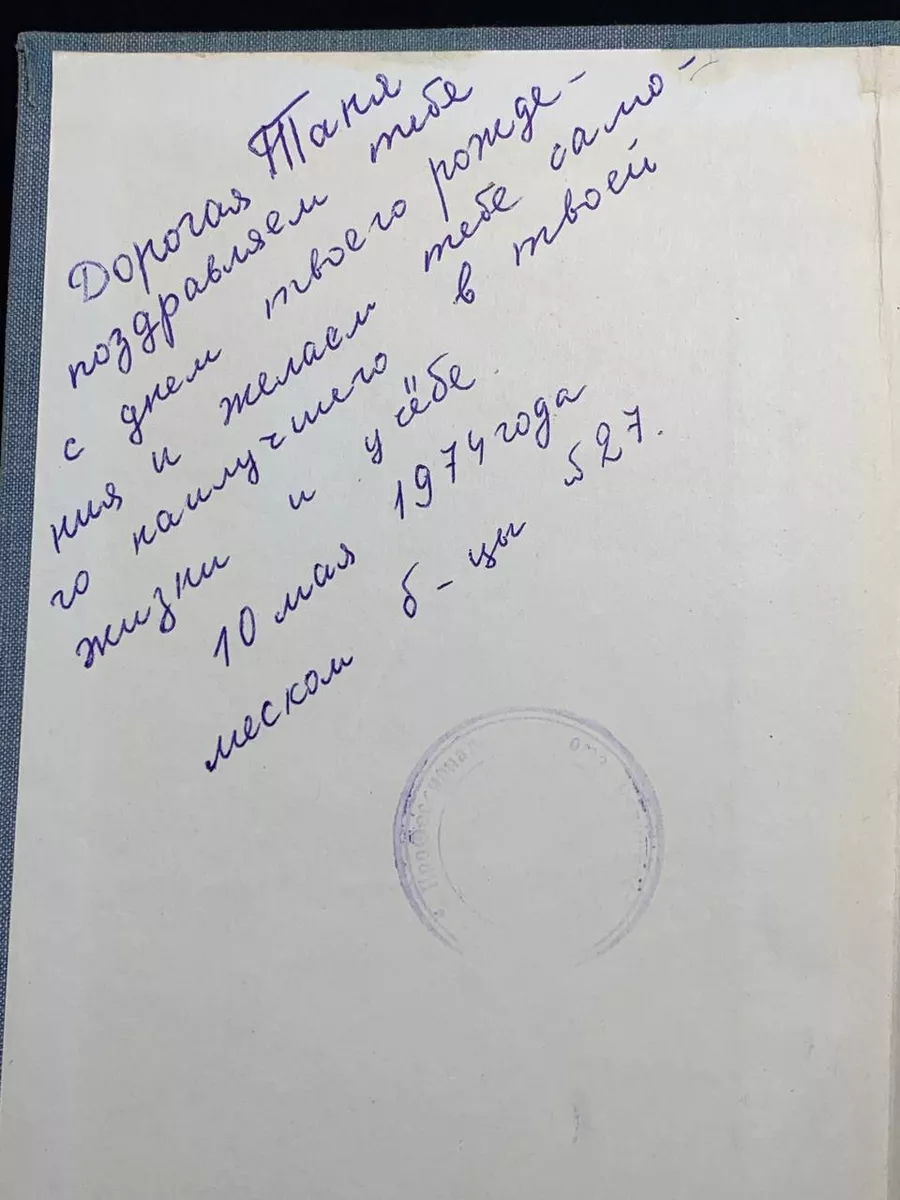 Дорогая Таня
поздравляем тебе
с днем твоего рожде-
ния и желаем тебе само-
го наилучшего в твоей
жизни и учёбе.
10 мая 1974 года
меском б-цы №27.